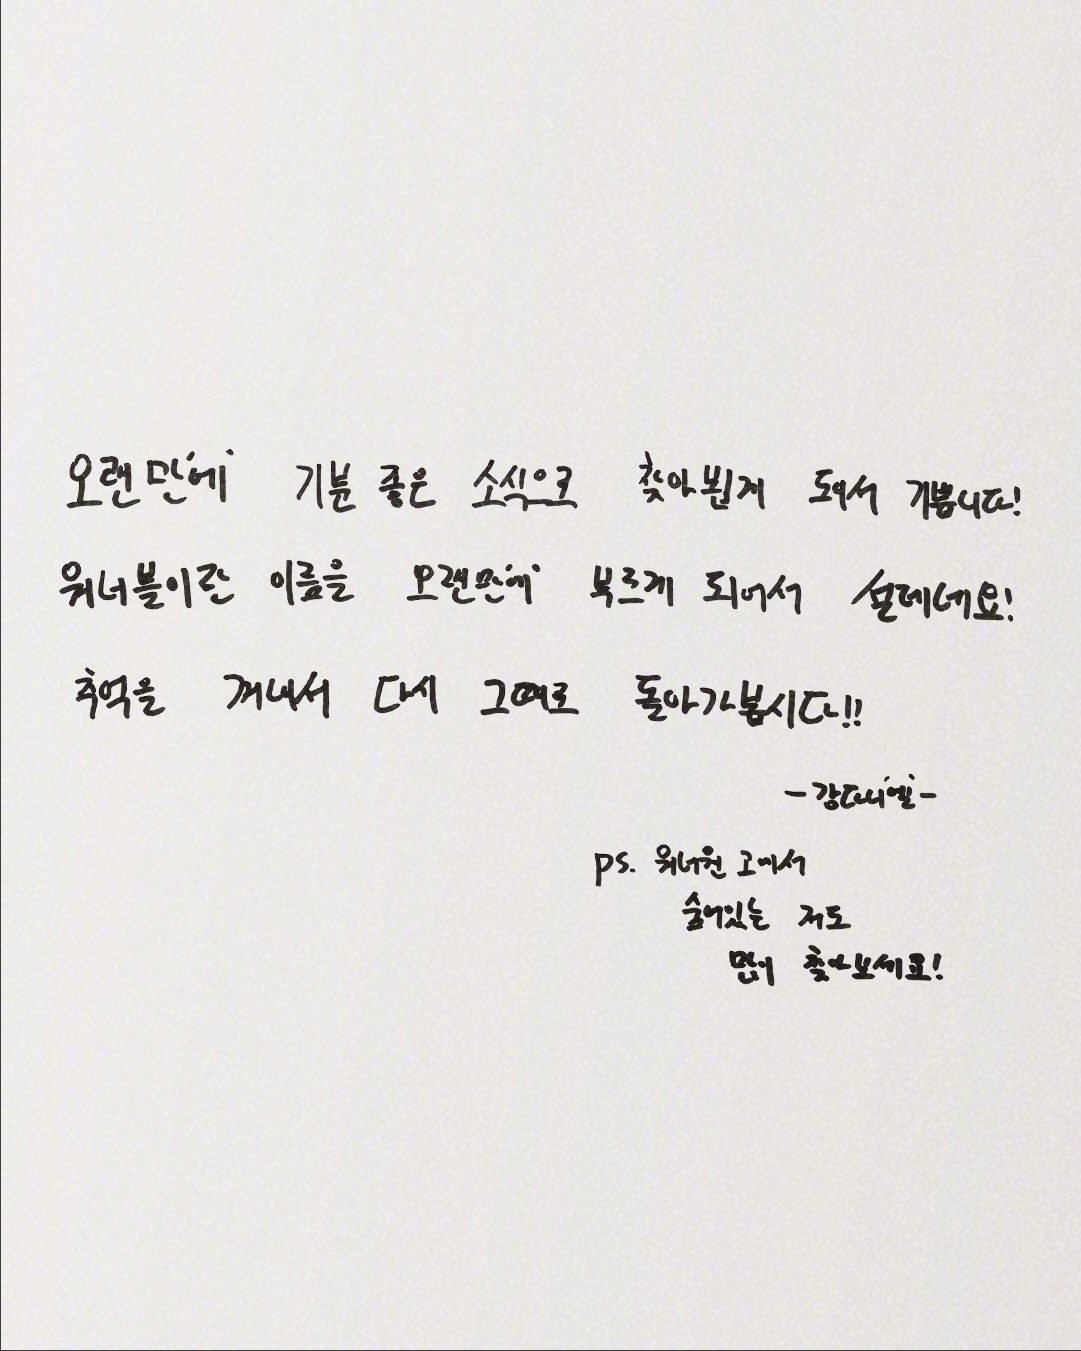 오랜만에 기분 좋은 소식으로 찾아뵙게 되어서 기쁩니다!
워너블이란 이름을 오랜만에 부르게 되어서 설레네요!
추억을 꺼내서 다시 그때로 돌아가봅시다!!
-강다니엘-
ps. 워너원 고에서
숨어있는 저도
많이 찾아보세요!